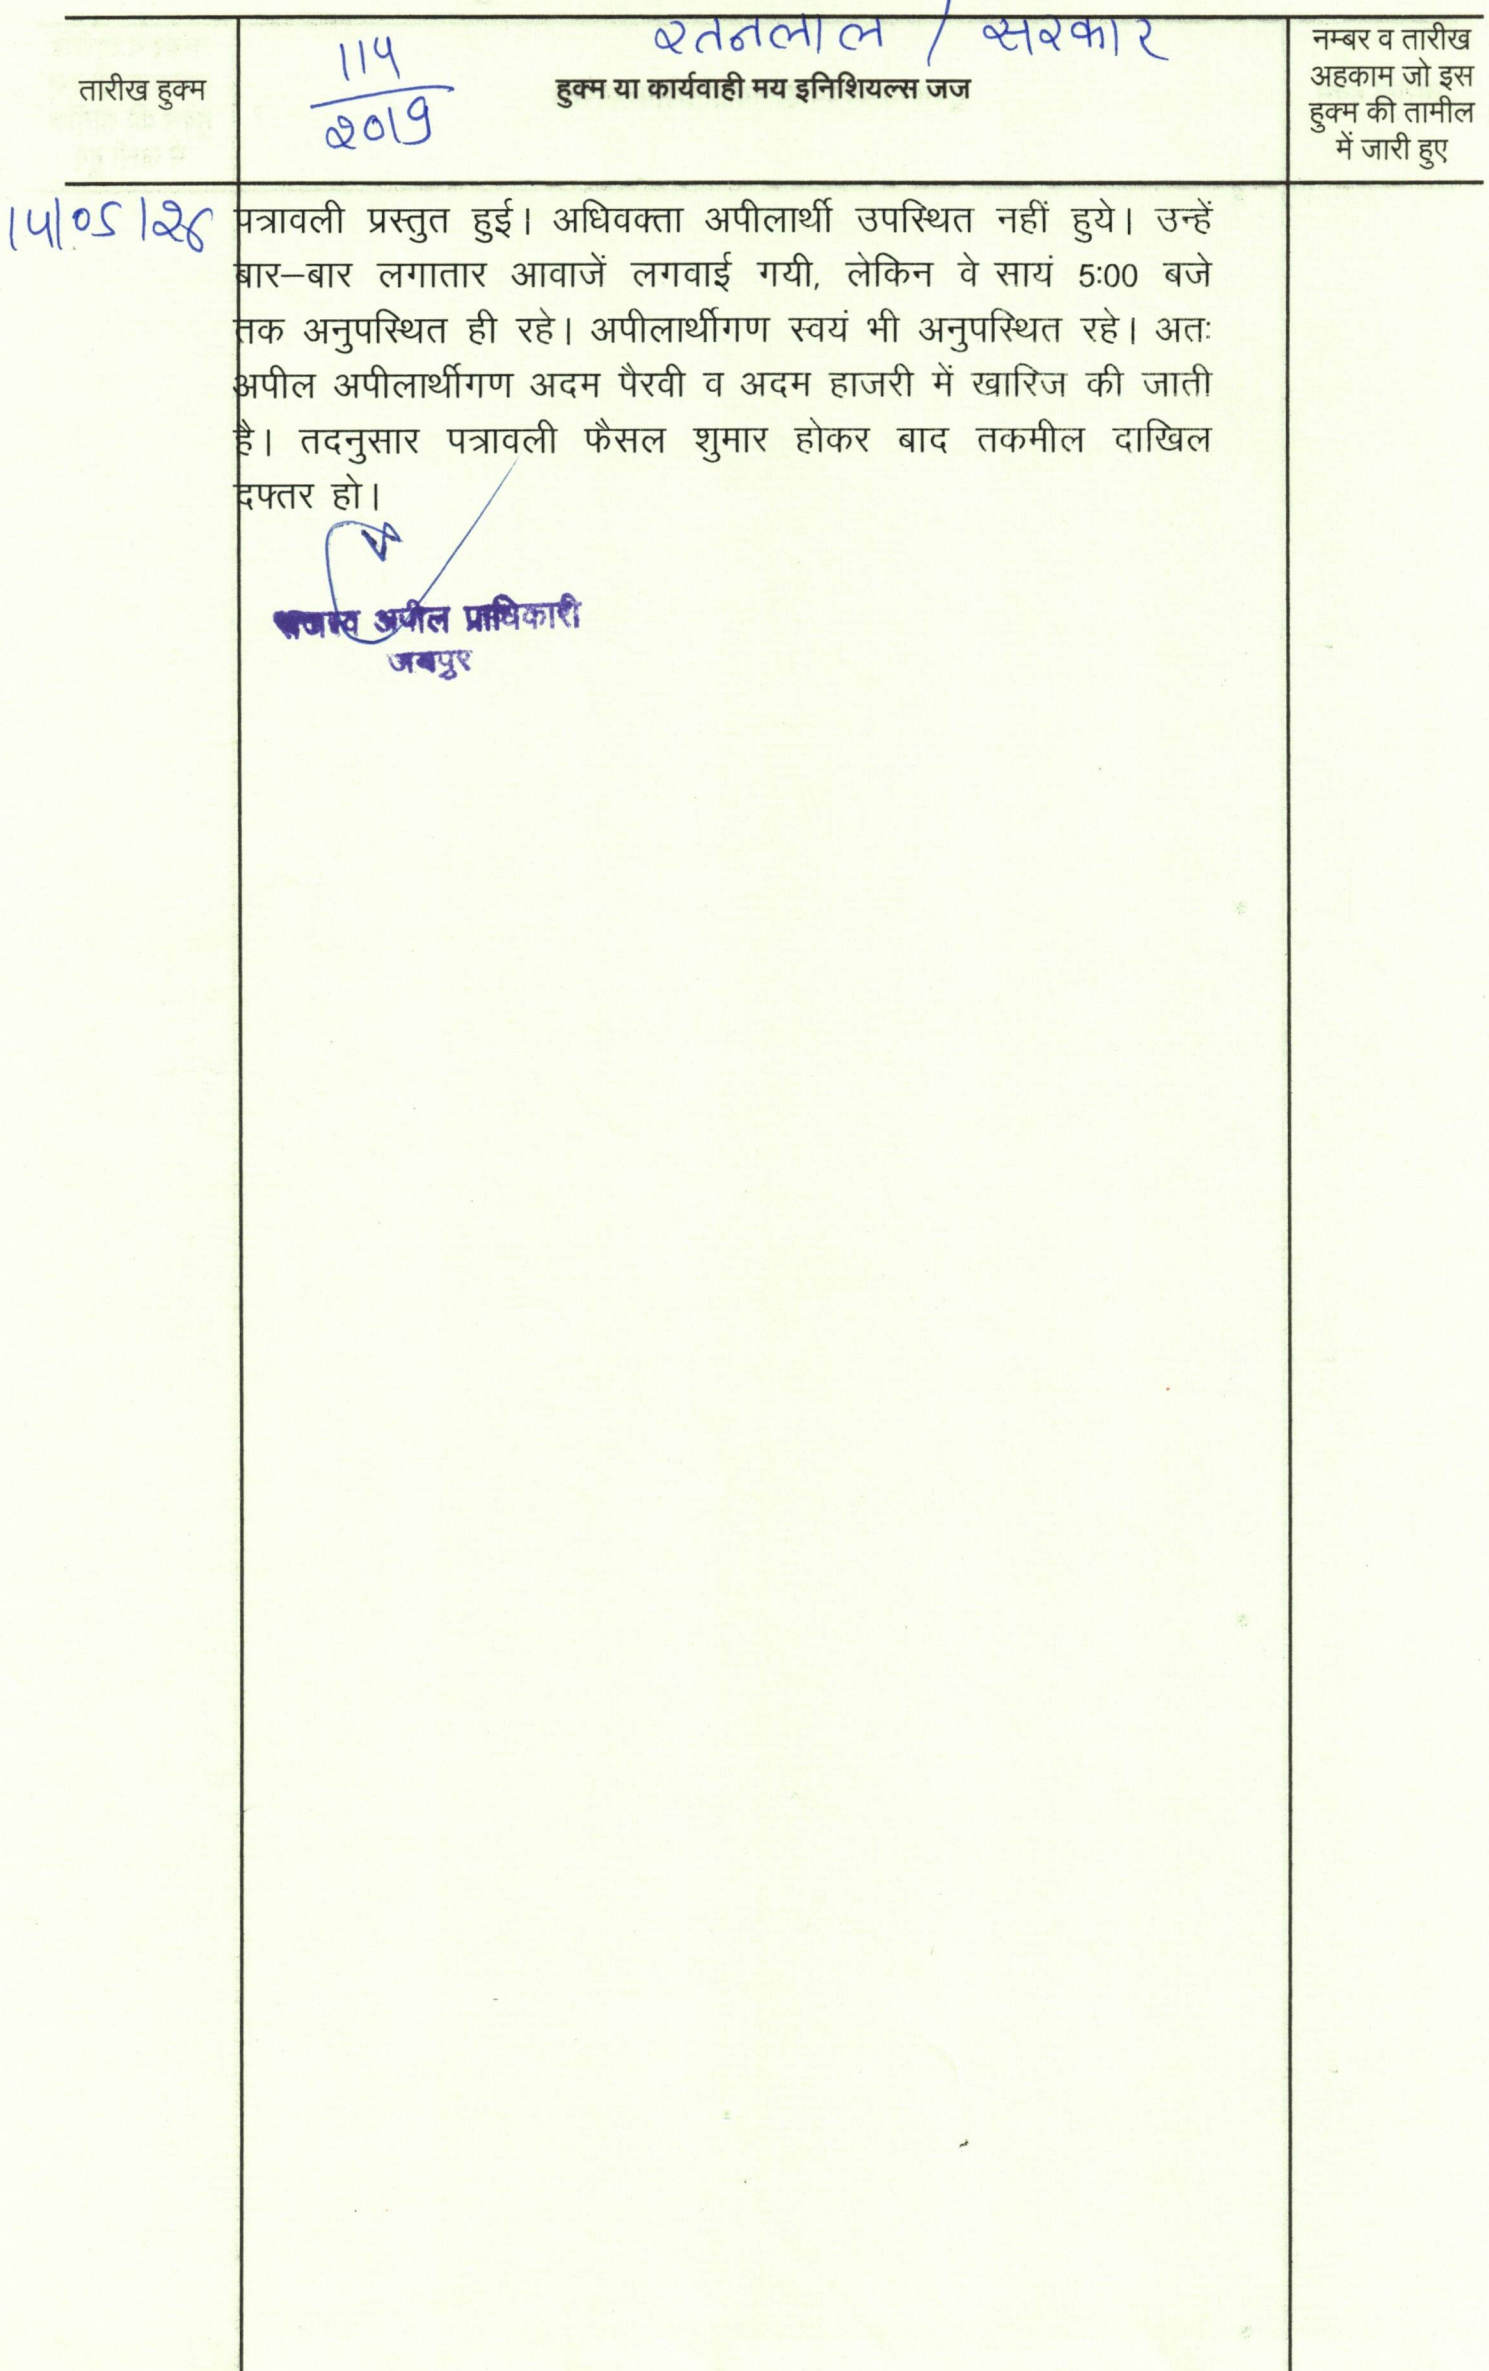 रतनलाल / सरकार
तारीख हुक्म
114
2019
हुक्म या कार्यवाही मय इनिशियल्स जज
नम्बर व तारीख
अहकाम जो इस
हुक्म की तामील
में जारी हुए
पत्रावली प्रस्तुत हुई। अधिवक्ता अपीलार्थी उपस्थित नहीं हुये। उन्हें
बार–बार लगातार आवाजें लगवाई गयी, लेकिन वे सायं 5:00 बजे
तक अनुपस्थित ही रहे। अपीलार्थीगण स्वयं भी अनुपस्थित रहे। अतः
अपील अपीलार्थीगण अदम पैरवी व अदम हाजरी में खारिज की जाती
है। तदनुसार पत्रावली फैसल शुमार होकर बाद तकमील दाखिल
दफ्तर हो।
राजस्व अपील प्राधिकारी
जयपुर